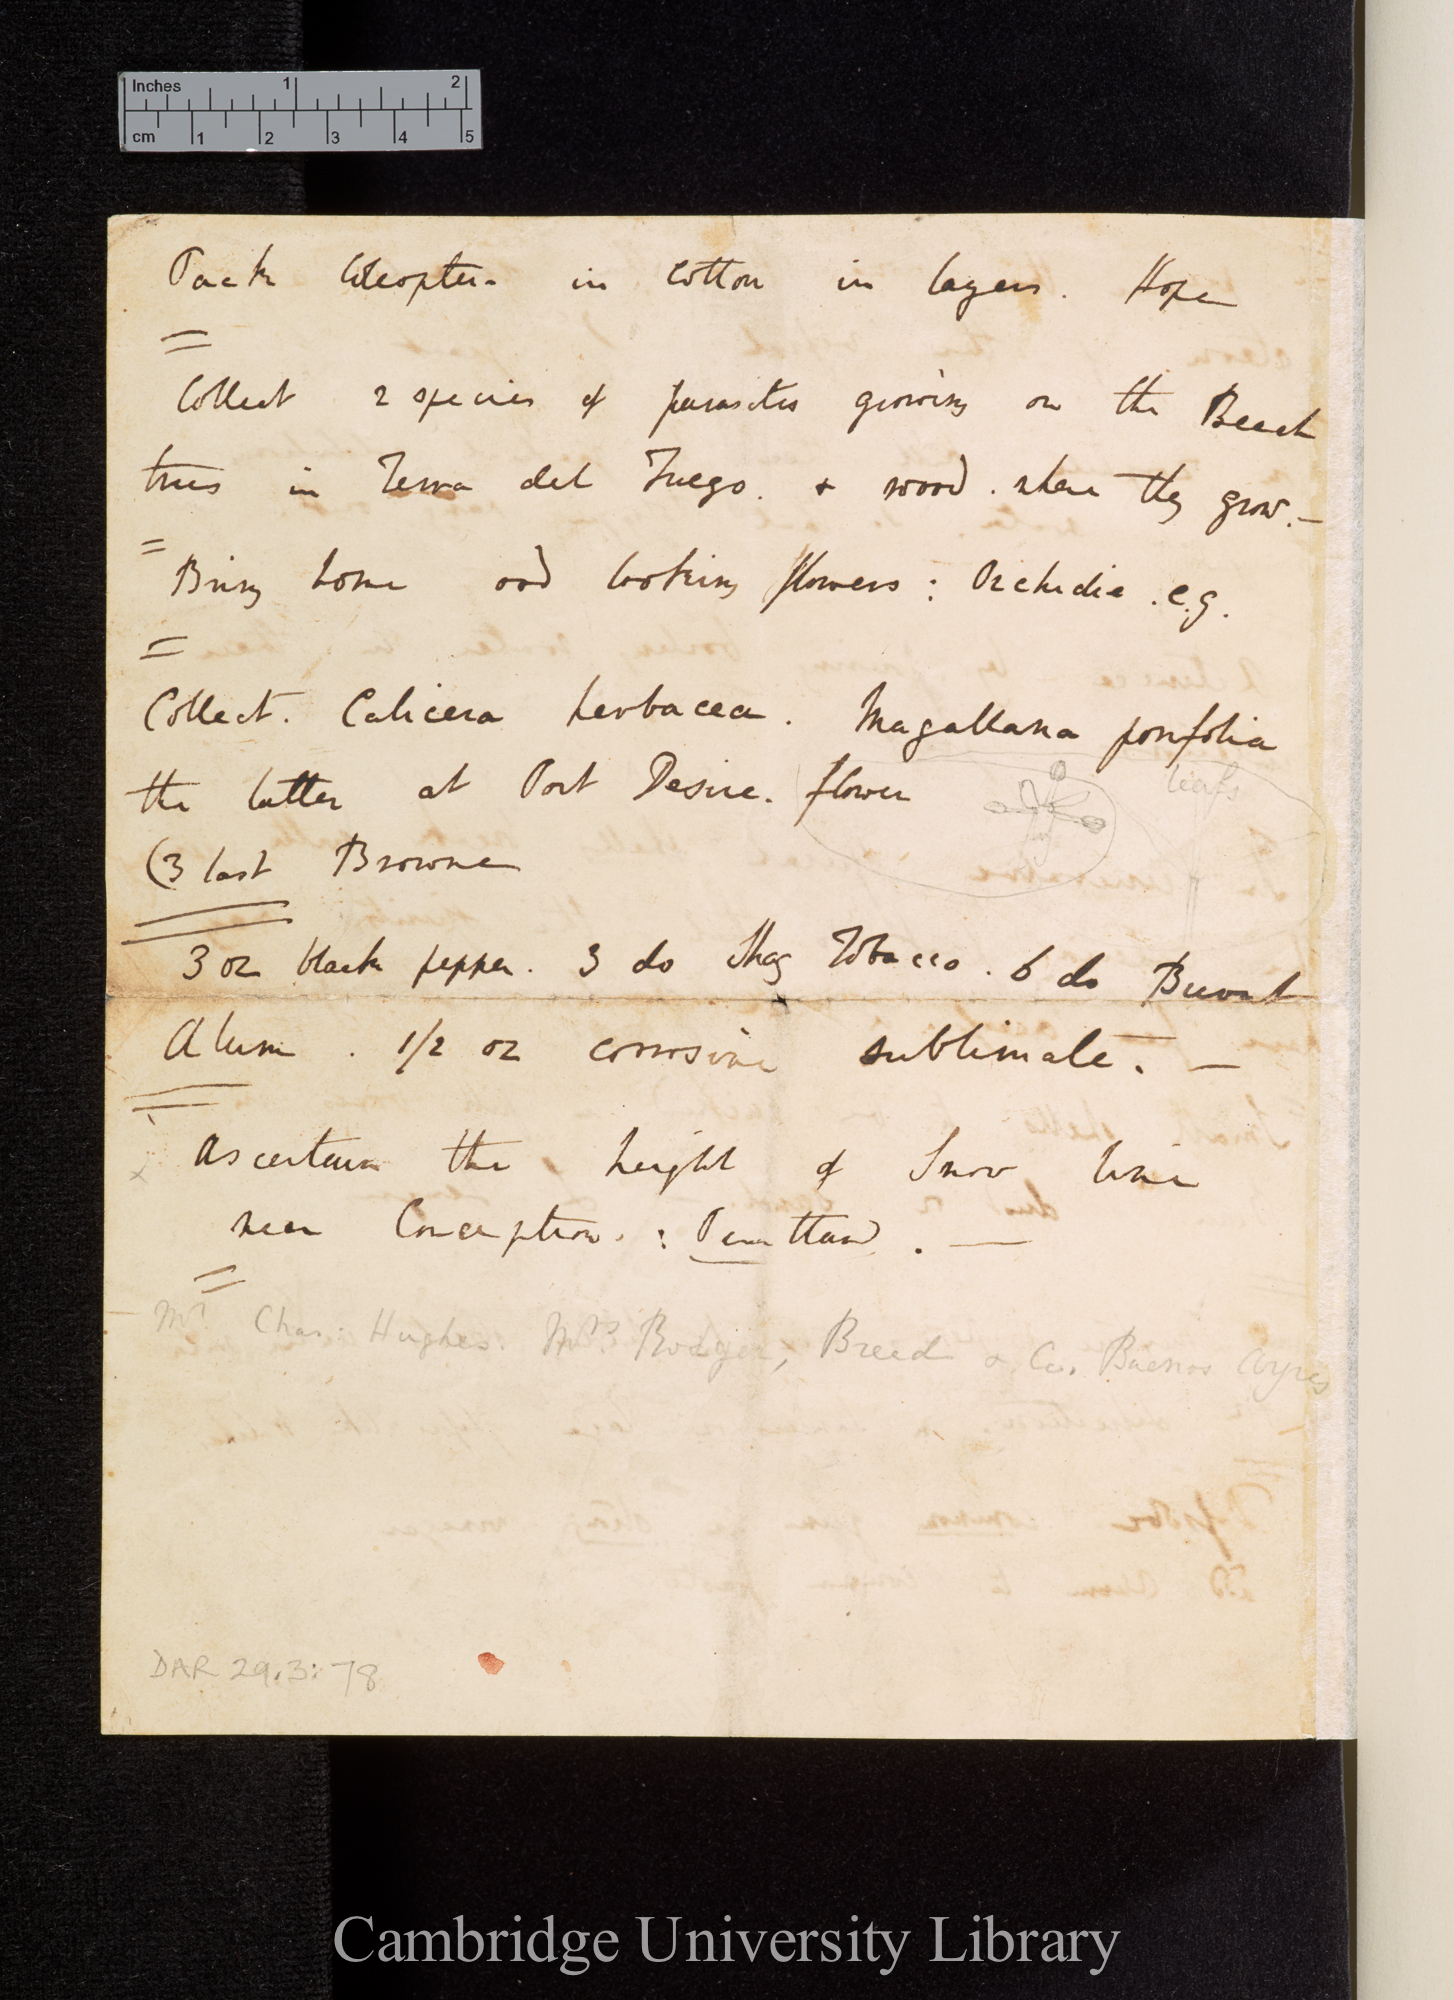 Inches 1 2
cm 1 2 3 4 5
Pack Coleoptera in cotton in layers. Hope
=
Collect 2 species of parasites growing on the Beech
trees in Terra del Fuego. & wood where they grow.—
=
Bring home odd looking flowers: Orchidiæ. e.g.
=
Collect. Calicera herbacea. Magallana porifolia
the latter at Port Desire. flower
(3 last Browne
3 oz black pepper. 3 do Shag Tobacco. 6 do Burnt
Alum. 1/2 oz corrosive sublimate. —
x
Ascertain the height of Snow line
near Conception. : Pentland. —
=
Mr. Chas: Hughes. Mrs Rodger, Breed & Co. Buenos Ayres
DAR 29.3:78
Cambridge University Library